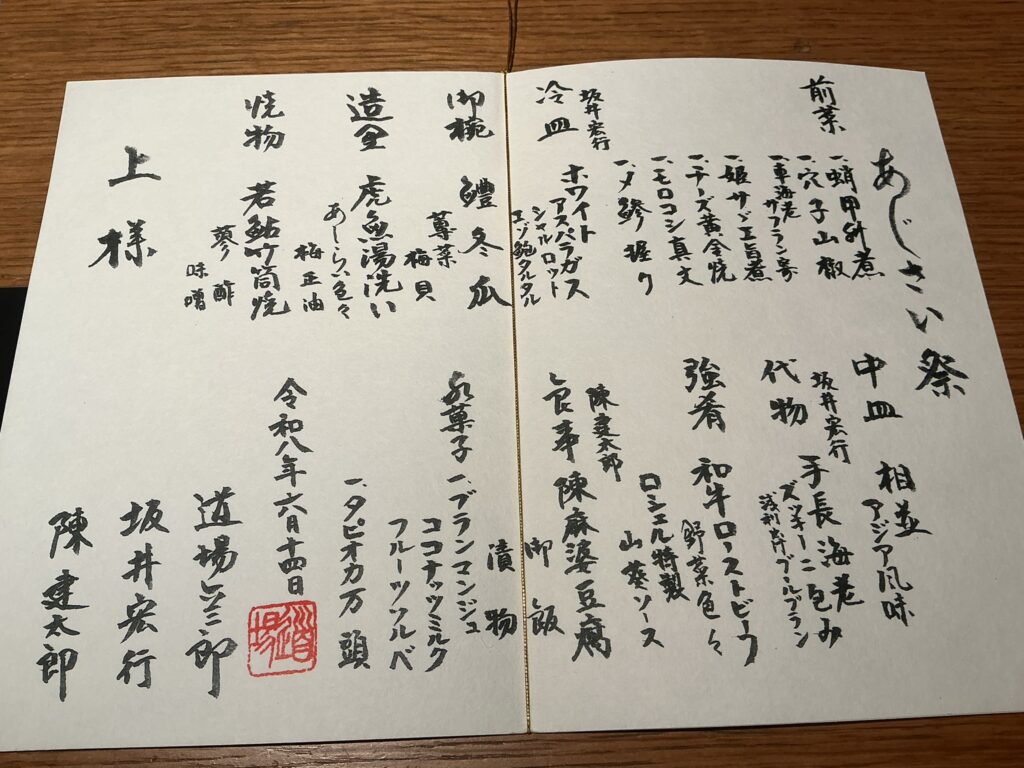 あじさい祭
前菜
一、蛸甲州煮
一、穴子山椒
一、車海老サフラン寄
一、姫サザエ旨煮
一、チーズ黄金焼
一、モロコシ真丈
一、〆鯵握り
坂井宏行
冷皿
ホワイト
アスパラガス
シャルロット
エゾ鮑タルタル
御椀
鱧冬瓜
蓴菜
梅貝
造里
虎魚湯洗い
あしらい色々
梅正油
焼物
若鮎竹筒焼
蓼酢
味噌
上様
中皿
相並
アジア風味
坂井宏行
代物
手長海老
ズッキーニ包み
浅利出汁ブールブラン
強肴
和牛ローストビーフ
野菜色々
ロシェル特製
山葵ソース
陳建太郎
食事
陳麻婆豆腐
御飯
漬物
水菓子
一、ブランマンジュ
ココナッツミルク
フルーツソルベ
一、タピオカ万頭
令和八年六月十四日
道場
道場六三郎
坂井宏行
陳建太郎